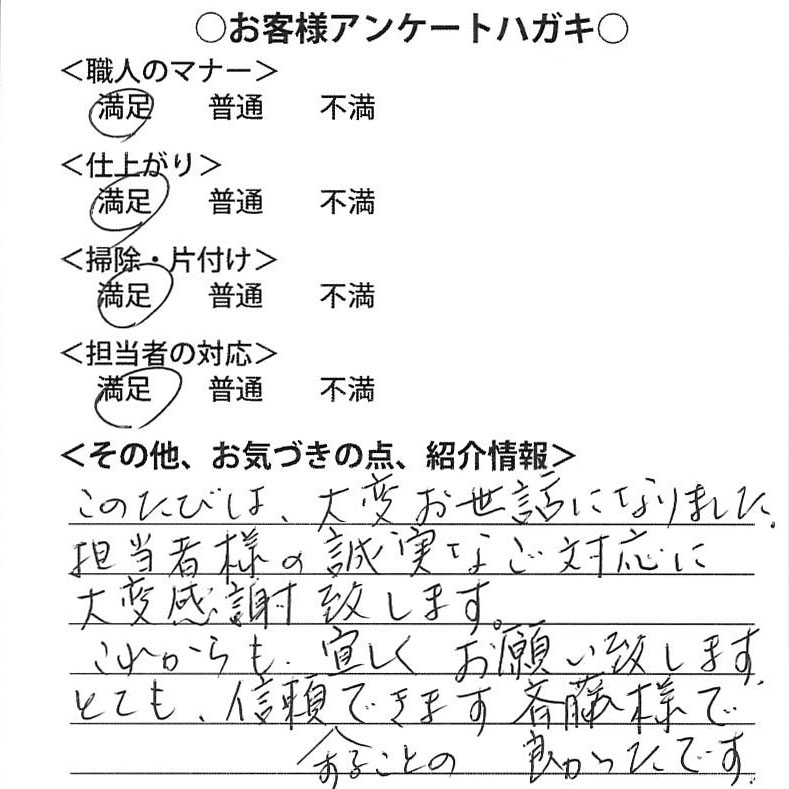 ○お客様アンケートハガキ○
＜職人のマナー＞
満足 普通 不満
＜仕上がり＞
満足 普通 不満
＜掃除・片付け＞
満足 普通 不満
＜担当者の対応＞
満足 普通 不満
＜その他、お気づきの点、紹介情報＞
このたびは、大変お世話になりました。
担当者様の誠実なご対応に
大変感謝致します。
これからも、宜しくお願い致します。
とても、信頼できます斉藤様で
ことの 良かったです。